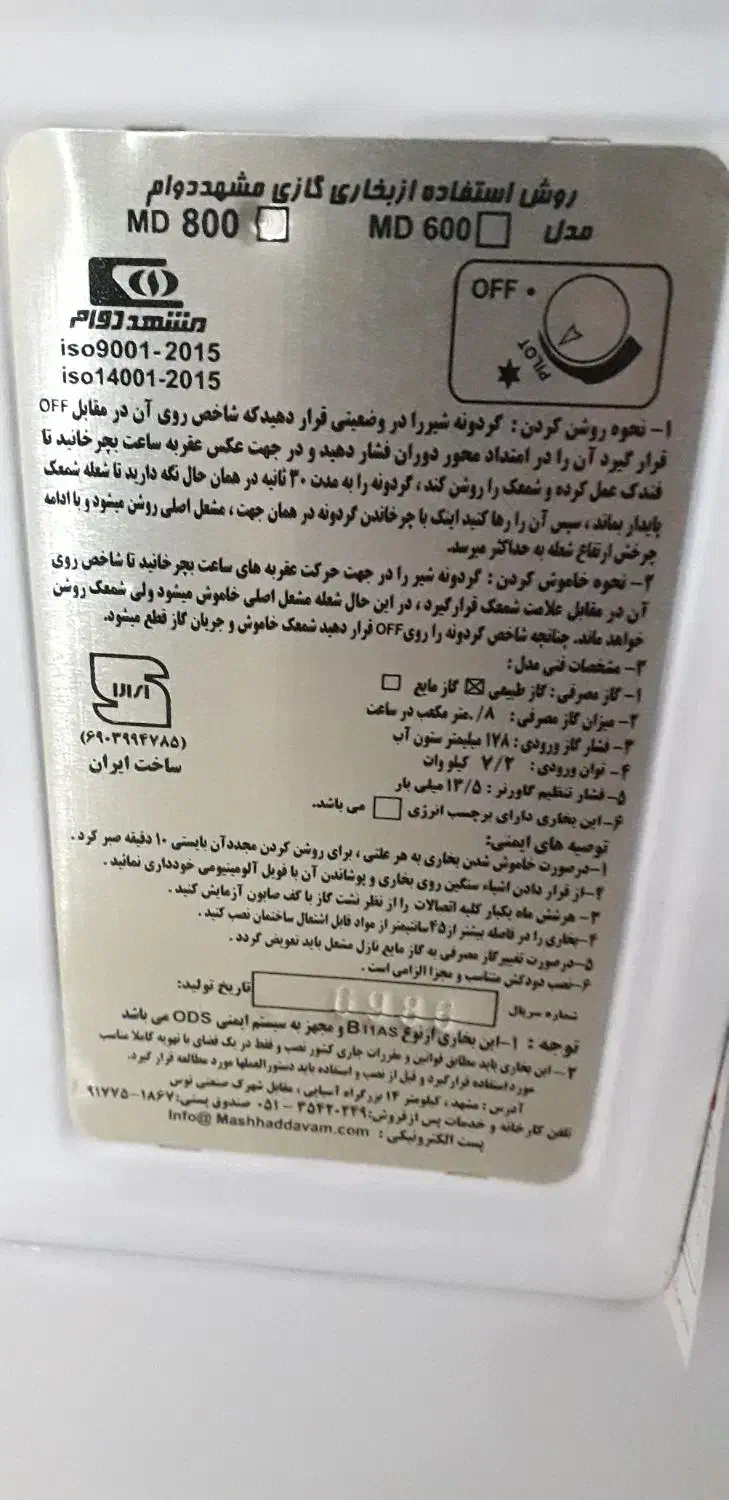 روش استفاده از بخاری گازی مشهد دوام
مدل MD 600 MD 800
OFF •
PILOT
مشهد دوام
iso9001-2015
iso14001-2015
۱- نحوه روشن کردن : گردونه شیررا در وضعیتی قرار دهیدکه شاخص روی آن در مقابل OFF
قرار گیرد آن را در امتداد محور دوران فشار دهید و در جهت عکس عقربه ساعت بچرخانید تا
فندک عمل کرده و شمعک را روشن کند ، گردونه را به مدت ۳۰ ثانیه در همان حال نگه دارید تا شعله شمعک
پایدار بماند ، سپس آن را رها کنید اینک با چرخاندن گردونه در همان جهت ، مشعل اصلی روشن میشود و با ادامه
چرخش ارتفاع شعله به حداکثر میرسد.
۲- نحوه خاموش کردن : گردونه شیر را در جهت حرکت عقربه های ساعت بچرخانید تا شاخص روی
آن در مقابل علامت شمعک قرارگیرد ، در این حال شعله مشعل اصلی خاموش میشود ولی شمعک روشن
خواهد ماند. چنانچه شاخص گردونه را رویOFF قرار دهید شمعک خاموش و جریان گاز قطع میشود.
۳- مشخصات فنی مدل :
۱- گاز مصرفی : گاز طبیعی ☒ گاز مایع ☐
۲- میزان گاز مصرفی : ۰/۸ متر مکعب در ساعت
۳- فشار گاز ورودی : ۱۷۸ میلیمتر ستون آب
۴- توان ورودی : ۷/۲ کیلو وات
۵- فشار تنظیم گاورنر : ۱۳/۵ میلی بار
۶- این بخاری دارای برچسب انرژی ☐ می باشد.
(۶۹۰۳۹۹۴۷۸۵)
ساخت ایران
توصیه های ایمنی:
۱-درصورت خاموش شدن بخاری به هر علتی ، برای روشن کردن مجددآن بایستی ۱۰ دقیقه صبر کرد .
۲-از قرار دادن اشیاء سنگین روی بخاری و پوشاندن آن با فویل آلومینیومی خودداری نمائید .
۳- هرشش ماه یکبار کلیه اتصالات را از نظر نشت گاز با کف صابون آزمایش کنید .
۴-بخاری را در فاصله بیشتر از۴۵سانتیمتر از مواد قابل اشتعال ساختمان نصب کنید .
۵-درصورت تغییرگاز مصرفی به گاز مایع نازل مشعل باید تعویض گردد .
۶-نصب دودکش متناسب و مجزا الزامی است .
شماره سریال تاریخ تولید:
توجه : ۱-این بخاری ازنوع B11AS و مجهز به سیستم ایمنی ODS می باشد
۲- این بخاری باید مطابق قوانین و مقررات جاری کشور نصب و فقط در یک فضای با تهویه کاملا مناسب
مورد استفاده قرارگیرد و قبل از نصب و استفاده باید دستورالعملها مورد مطالعه قرار گیرد.
آدرس : مشهد ، کیلومتر ۱۴ بزرگراه آسیایی ، مقابل شهرک صنعتی توس
تلفن کارخانه و خدمات پس ازفروش:۳۵۴۲۰۲۴۹ – ۰۵۱ صندوق پستی:۱۸۶۷-۹۱۷۷۵
پست الکترونیکی : Info@ Mashhaddavam.com